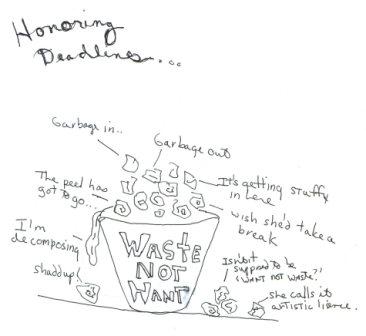 Honoring
Deadlines...
Garbage in..
Garbage out
It's getting stuffy
in here
The peel has
got to go...
wish she'd take a
break
I'm
decomposing
shaddup!
WASTE
NOT
WANT
Isn't it
supposed to be
"WANT NOT WASTE?"
she calls it
artistic licence.